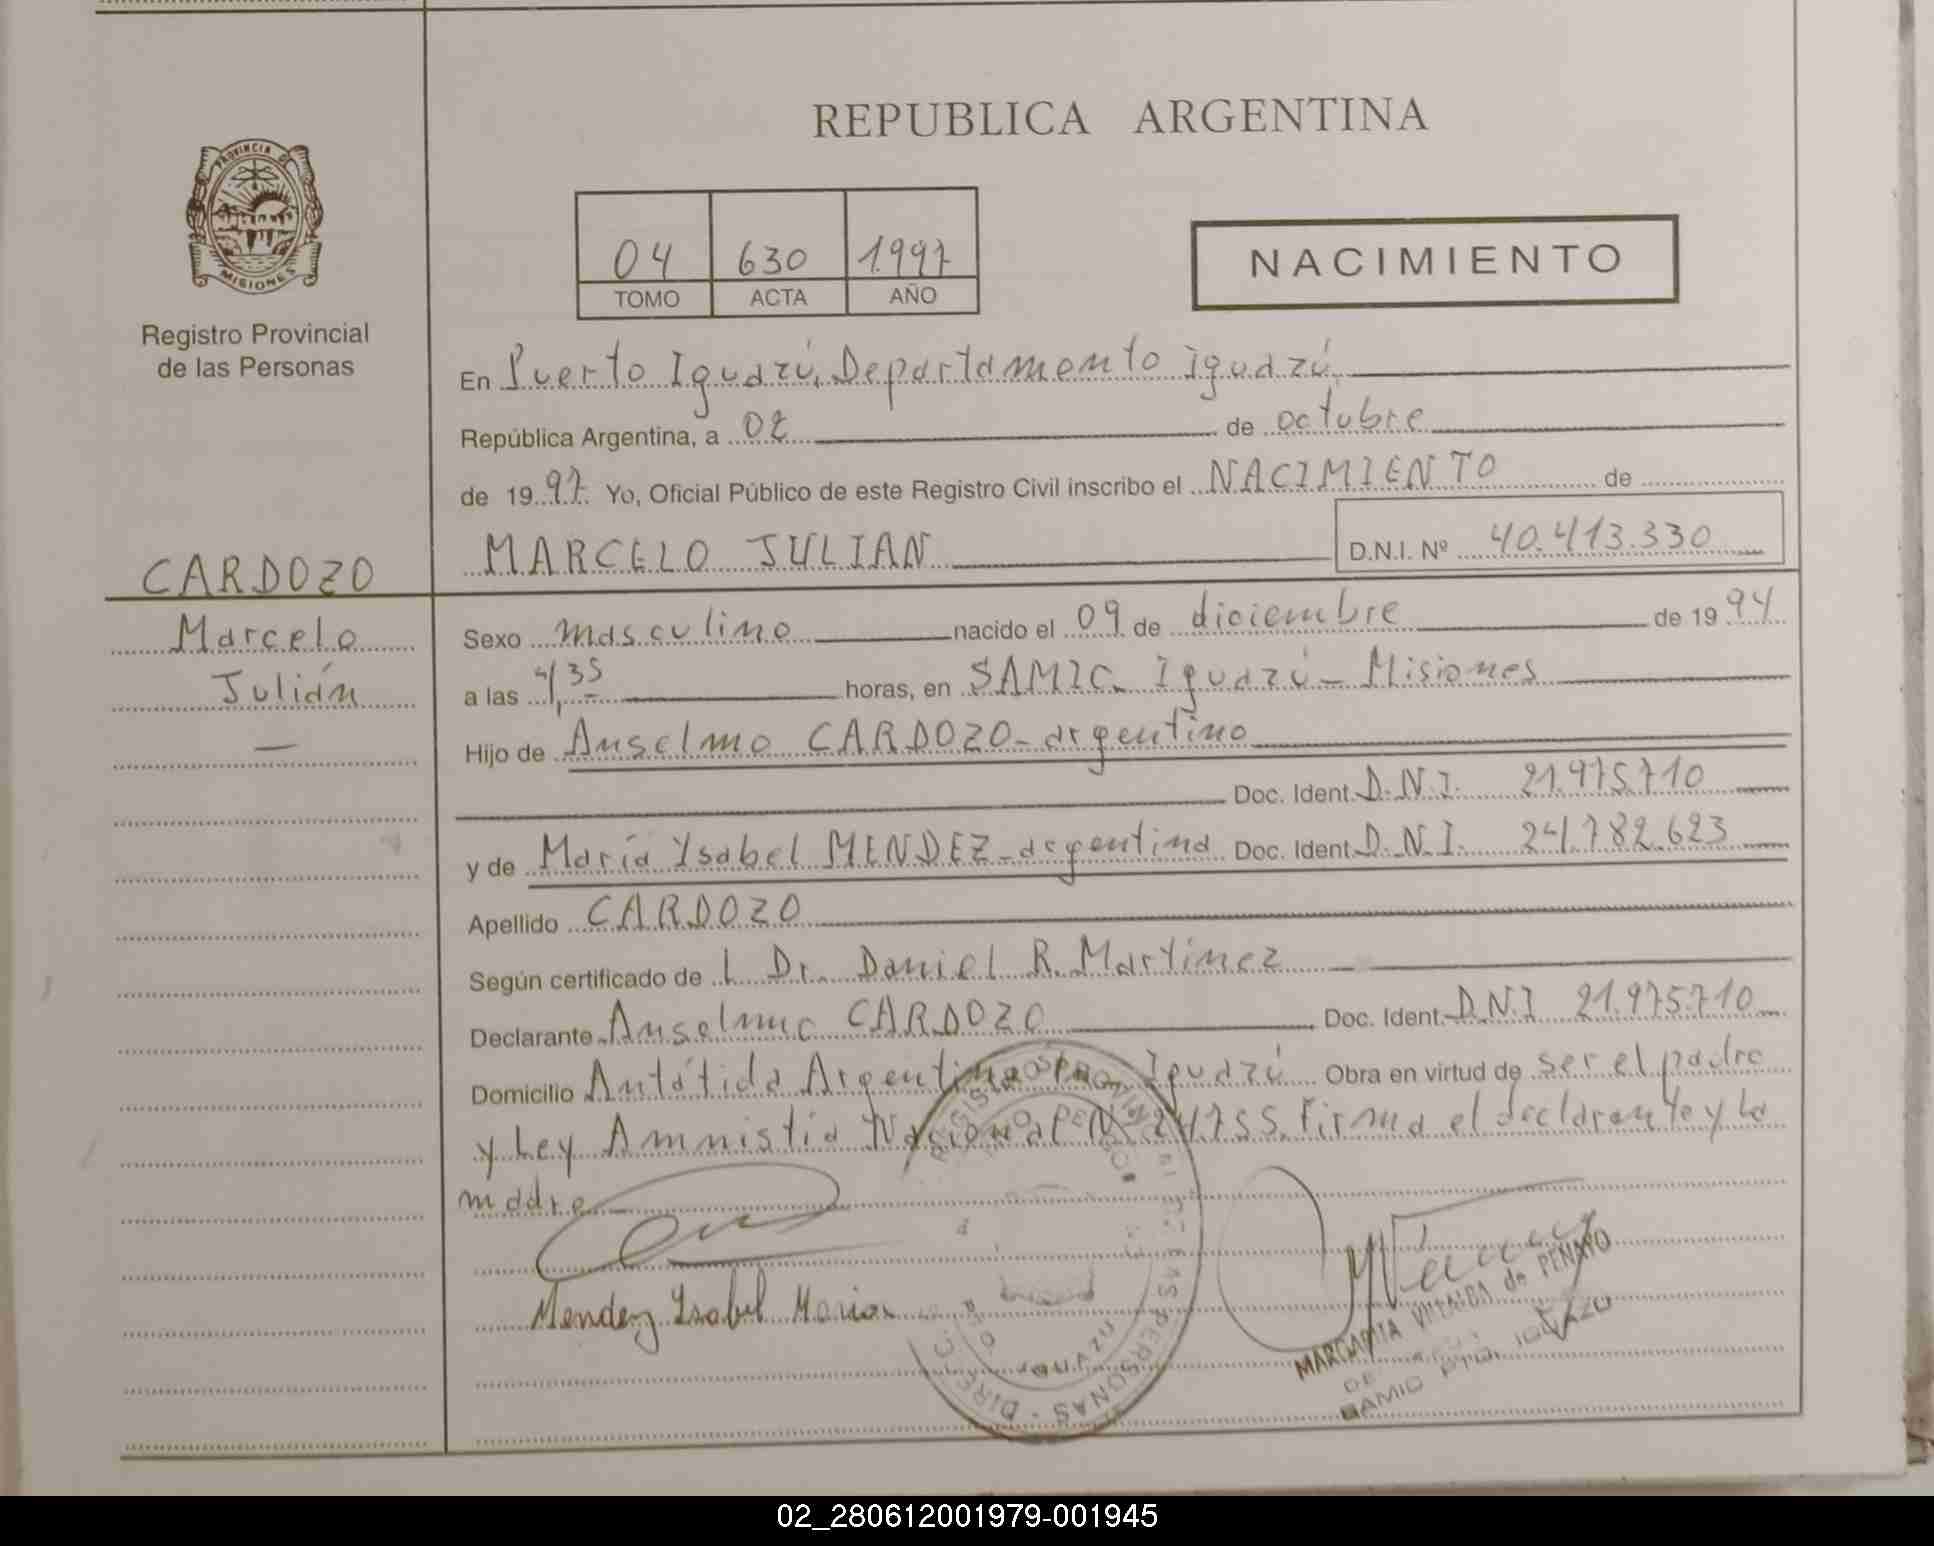 REPUBLICA ARGENTINA
PROVINCIA DE
MISIONES
Registro Provincial
de las Personas
04 630 1.997
TOMO ACTA AÑO
NACIMIENTO
En Puerto Iguazú, Departamento iguazú
República Argentina, a 02 de octubre
de 19 97 Yo, Oficial Público de este Registro Civil inscribo el NACIMIENTO de
MARCELO JULIAN D.N.I. Nº 40.413.330
CARDOZO
Marcelo
Julián
Sexo masculino nacido el 09 de diciembre de 19 94
a las 4,35 horas, en SAMIC Iguazú - Misiones
Hijo de Anselmo CARDOZO - argentino
Doc. Ident. D.N.I. 21.975.710
y de María Ysabel MENDEZ - argentina Doc. Ident. D.N.I. 24.782.623
Apellido CARDOZO
Según certificado de L Dr. Daniel R. Martinez
Declarante Anselmo CARDOZO Doc. Ident. D.N.I 21.975.710
Domicilio Antártida Argentina Iguazú Obra en virtud de ser el padre
y Ley Amnistia Nacional Nº 24755. Firma el declarante y la
madre
Mendez Ysabel Maria
MARGARITA VILLALBA de PENAYO
IGUAZU
PERSONAS - DIRECC
02_280612001979-001945